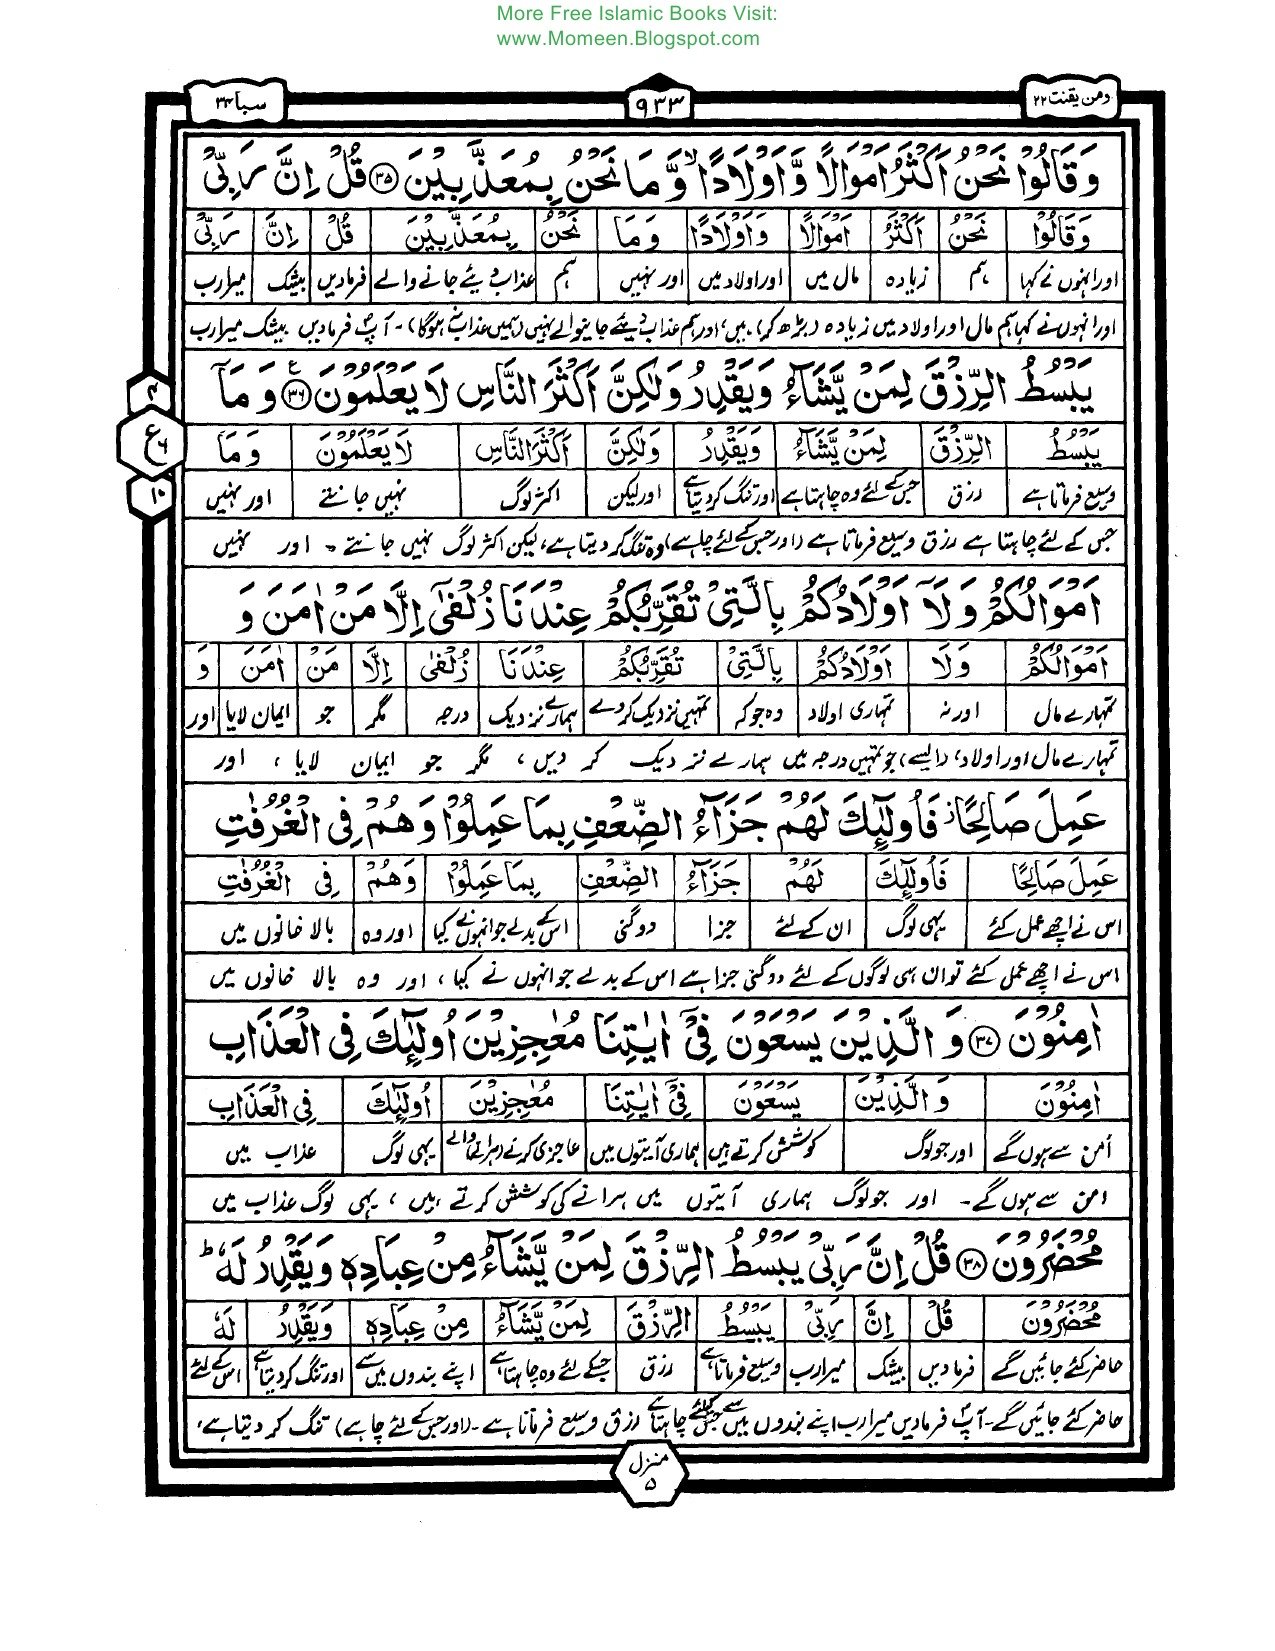 More Free Islamic Books Visit:
www.Momeen.Blogspot.com
ومن يقنت ۲۲
۹۳۳
سبا ۳۴
وَقَالُوْا نَحْنُ اَكْثَرُ اَمْوَالًا وَّاَوْلَادًا ۙ وَّمَا نَحْنُ بِمُعَذَّبِيْنَ ﴿۳۵﴾ قُلْ اِنَّ رَبِّيْ
وَقَالُوْا نَحْنُ اَكْثَرُ اَمْوَالًا وَاَوْلَادًا وَمَا نَحْنُ بِمُعَذَّبِيْنَ قُلْ اِنَّ رَبِّيْ
اور انہوں نے کہا ہم زیادہ مال میں اور اولاد میں اور نہیں ہم عذاب دیئے جانے والے فرمادیں بیشک میرارب
اور انہوں نے کہا ہم مال اور اولاد میں زیادہ (بڑھ کر) ہیں، اور ہم عذاب دیئے جانیوالے نہیں (ہمیں عذاب نہ ہوگا)۔ آپؐ فرمادیں بیشک میرارب
يَبْسُطُ الرِّزْقَ لِمَنْ يَّشَآءُ وَيَقْدِرُ وَلٰكِنَّ اَكْثَرَ النَّاسِ لَا يَعْلَمُوْنَ ﴿۳۶﴾ ع وَمَآ
۴
ع ۶
۱۰
يَبْسُطُ الرِّزْقَ لِمَنْ يَّشَآءُ وَيَقْدِرُ وَلٰكِنَّ اَكْثَرَ النَّاسِ لَا يَعْلَمُوْنَ وَمَآ
وسیع فرماتا ہے رزق جس کے لئے وہ چاہتا ہے اور تنگ کردیتا ہے اور لیکن اکثر لوگ نہیں جانتے اور نہیں
جس کے لئے چاہتا ہے رزق وسیع فرماتا ہے (اور جس کے لئے چاہے) وہ تنگ کر دیتا ہے، لیکن اکثر لوگ نہیں جانتے۔ اور نہیں
اَمْوَالُكُمْ وَلَآ اَوْلَادُكُمْ بِالَّتِيْ تُقَرِّبُكُمْ عِنْدَنَا زُلْفٰٓى اِلَّا مَنْ اٰمَنَ وَ
اَمْوَالُكُمْ وَلَا اَوْلَادُكُمْ بِالَّتِيْ تُقَرِّبُكُمْ عِنْدَنَا زُلْفٰى اِلَّا مَنْ اٰمَنَ وَ
تمہارے مال اور نہ تمہاری اولاد وہ جو کہ تمہیں نزدیک کردے ہمارے نزدیک درجہ مگر جو ایمان لایا اور
تمہارے مال اور اولاد، (ایسے) جو تمہیں درجہ میں ہمارے نزدیک کر دیں، مگر جو ایمان لایا، اور
عَمِلَ صَالِحًا ز فَاُولٰٓئِكَ لَهُمْ جَزَآءُ الضِّعْفِ بِمَا عَمِلُوْا وَهُمْ فِى الْغُرُفٰتِ
عَمِلَ صَالِحًا فَاُولٰٓئِكَ لَهُمْ جَزَآءُ الضِّعْفِ بِمَا عَمِلُوْا وَهُمْ فِى الْغُرُفٰتِ
اس نے اچھے عمل کئے یہی لوگ ان کے لئے جزا دوگنی اس کے بدلے جو انہوں نے کیا اور وہ بالا خانوں میں
اس نے اچھے عمل کئے تو ان ہی لوگوں کے لئے دوگنی جزا ہے اس کے بدلے جو انہوں نے کیا، اور وہ بالا خانوں میں
اٰمِنُوْنَ ﴿۳۷﴾ وَ الَّذِيْنَ يَسْعَوْنَ فِيْٓ اٰيٰتِنَا مُعٰجِزِيْنَ اُولٰٓئِكَ فِى الْعَذَابِ
اٰمِنُوْنَ وَ الَّذِيْنَ يَسْعَوْنَ فِيْٓ اٰيٰتِنَا مُعٰجِزِيْنَ اُولٰٓئِكَ فِى الْعَذَابِ
امن سے ہوں گے اور جو لوگ کوشش کرتے ہیں ہماری آیتوں میں عاجز کرنے (ہرانے) والے یہی لوگ عذاب میں
امن سے ہوں گے۔ اور جو لوگ ہماری آیتوں میں ہرانے کی کوشش کرتے ہیں، یہی لوگ عذاب میں
مُحْضَرُوْنَ ﴿۳۸﴾ قُلْ اِنَّ رَبِّيْ يَبْسُطُ الرِّزْقَ لِمَنْ يَّشَآءُ مِنْ عِبَادِهٖ وَيَقْدِرُ لَهٗ ؕ
مُحْضَرُوْنَ قُلْ اِنَّ رَبِّيْ يَبْسُطُ الرِّزْقَ لِمَنْ يَّشَآءُ مِنْ عِبَادِهٖ وَيَقْدِرُ لَهٗ
حاضر کئے جائیں گے فرمادیں بیشک میرارب وسیع فرماتا ہے رزق جس کے لئے وہ چاہتا ہے اپنے بندوں میں سے اور تنگ کردیتا ہے اس کے لئے
حاضر کئے جائیں گے۔ آپؐ فرمادیں میرارب اپنے بندوں میں سے جس کیلئے چاہتا ہے رزق وسیع فرماتا ہے۔ (اور جس کے لئے چاہے) تنگ کر دیتا ہے،
منزل
۵